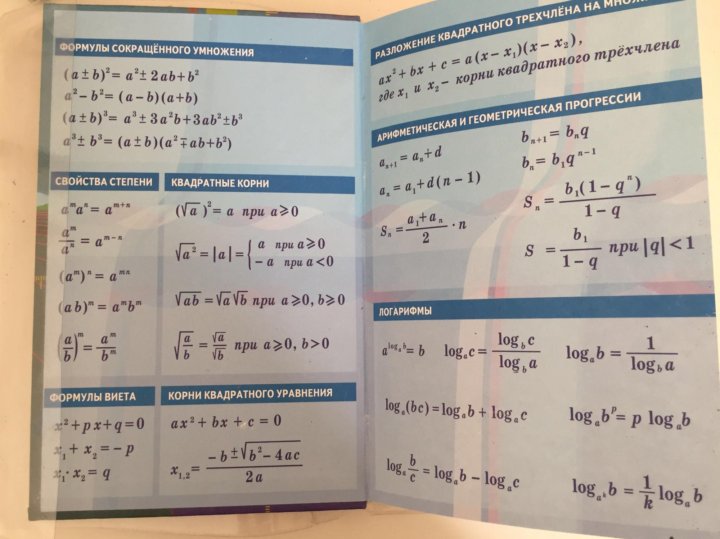 ФОРМУЛЫ СОКРАЩЁННОГО УМНОЖЕНИЯ
(a ± b)² = a² ± 2ab + b²
a² − b² = (a − b)(a + b)
(a ± b)³ = a³ ± 3a²b + 3ab² ± b³
a³ ± b³ = (a ± b)(a² ∓ ab + b²)
СВОЙСТВА СТЕПЕНИ
aᵐaⁿ = aᵐ⁺ⁿ
aᵐ/aⁿ = aᵐ⁻ⁿ
(aᵐ)ⁿ = aᵐⁿ
(ab)ᵐ = aᵐbᵐ
(a/b)ᵐ = aᵐ/bᵐ
КВАДРАТНЫЕ КОРНИ
(√a)² = a при a ⩾ 0
√a² = |a| = { a при a ⩾ 0
− a при a < 0
√ab = √a√b при a ⩾ 0, b ⩾ 0
√(a/b) = √a/√b при a ⩾ 0, b > 0
ФОРМУЛЫ ВИЕТА
x² + px + q = 0
x₁ + x₂ = − p
x₁ · x₂ = q
КОРНИ КВАДРАТНОГО УРАВНЕНИЯ
ax² + bx + c = 0
x₁,₂ = (− b ± √(b² − 4ac))/2a
РАЗЛОЖЕНИЕ КВАДРАТНОГО ТРЕХЧЛЁНА НА
ax² + bx + c = a(x − x₁)(x − x₂),
где x₁ и x₂ − корни квадратного трёхчлена
АРИФМЕТИЧЕСКАЯ И ГЕОМЕТРИЧЕСКАЯ ПРОГРЕССИИ
aₙ₊₁ = aₙ + d
aₙ = a₁ + d(n − 1)
Sₙ = (a₁ + aₙ)/2 · n
bₙ₊₁ = bₙq
bₙ = b₁qⁿ⁻¹
Sₙ = b₁(1 − qⁿ)/(1 − q)
S = b₁/(1 − q) при |q| < 1
ЛОГАРИФМЫ
a^(logₐb) = b logₐc = log_b c/log_b a logₐb = 1/log_b a
logₐ(bc) = logₐb + logₐc logₐbᵖ = p logₐb
logₐ(b/c) = logₐb − logₐc log_(aᵏ) b = 1/k logₐb